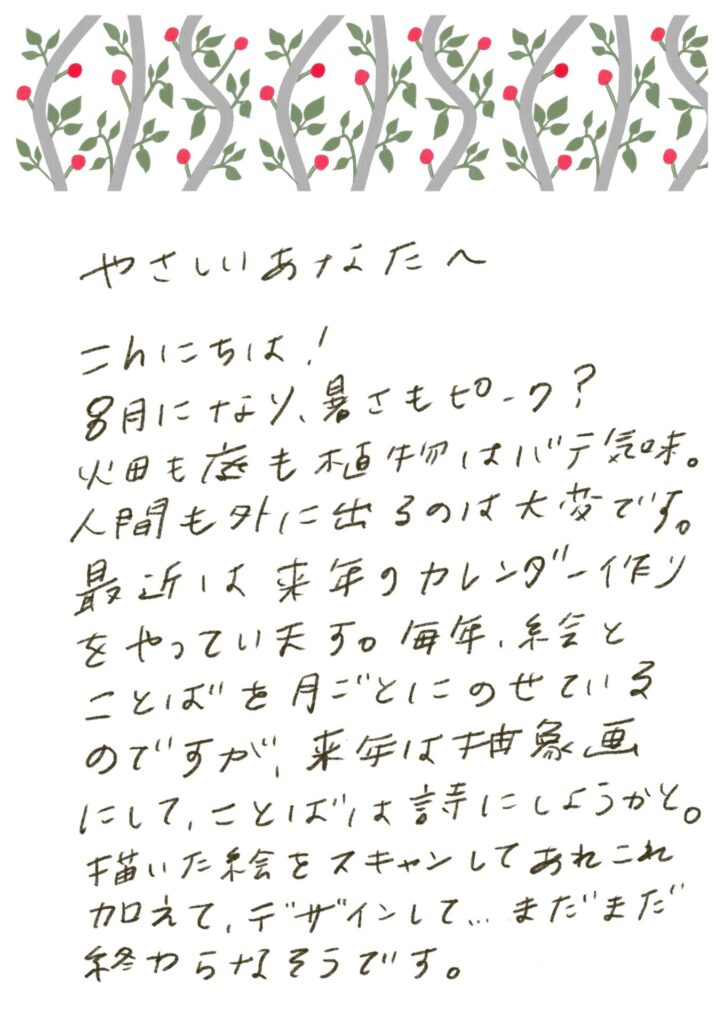 やさしいあなたへ
こんにちは!
8月になり、暑さもピーク?
畑も庭も植物はバテ気味。
人間も外に出るのは大変です。
最近は来年のカレンダー作り
をやっています。毎年、絵と
ことばを月ごとにのせている
のですが、来年は抽象画
にして、ことばは詩にしようかと。
描いた絵をスキャンしてあれこれ
加えて、デザインして…まだまだ
終わらなそうです。